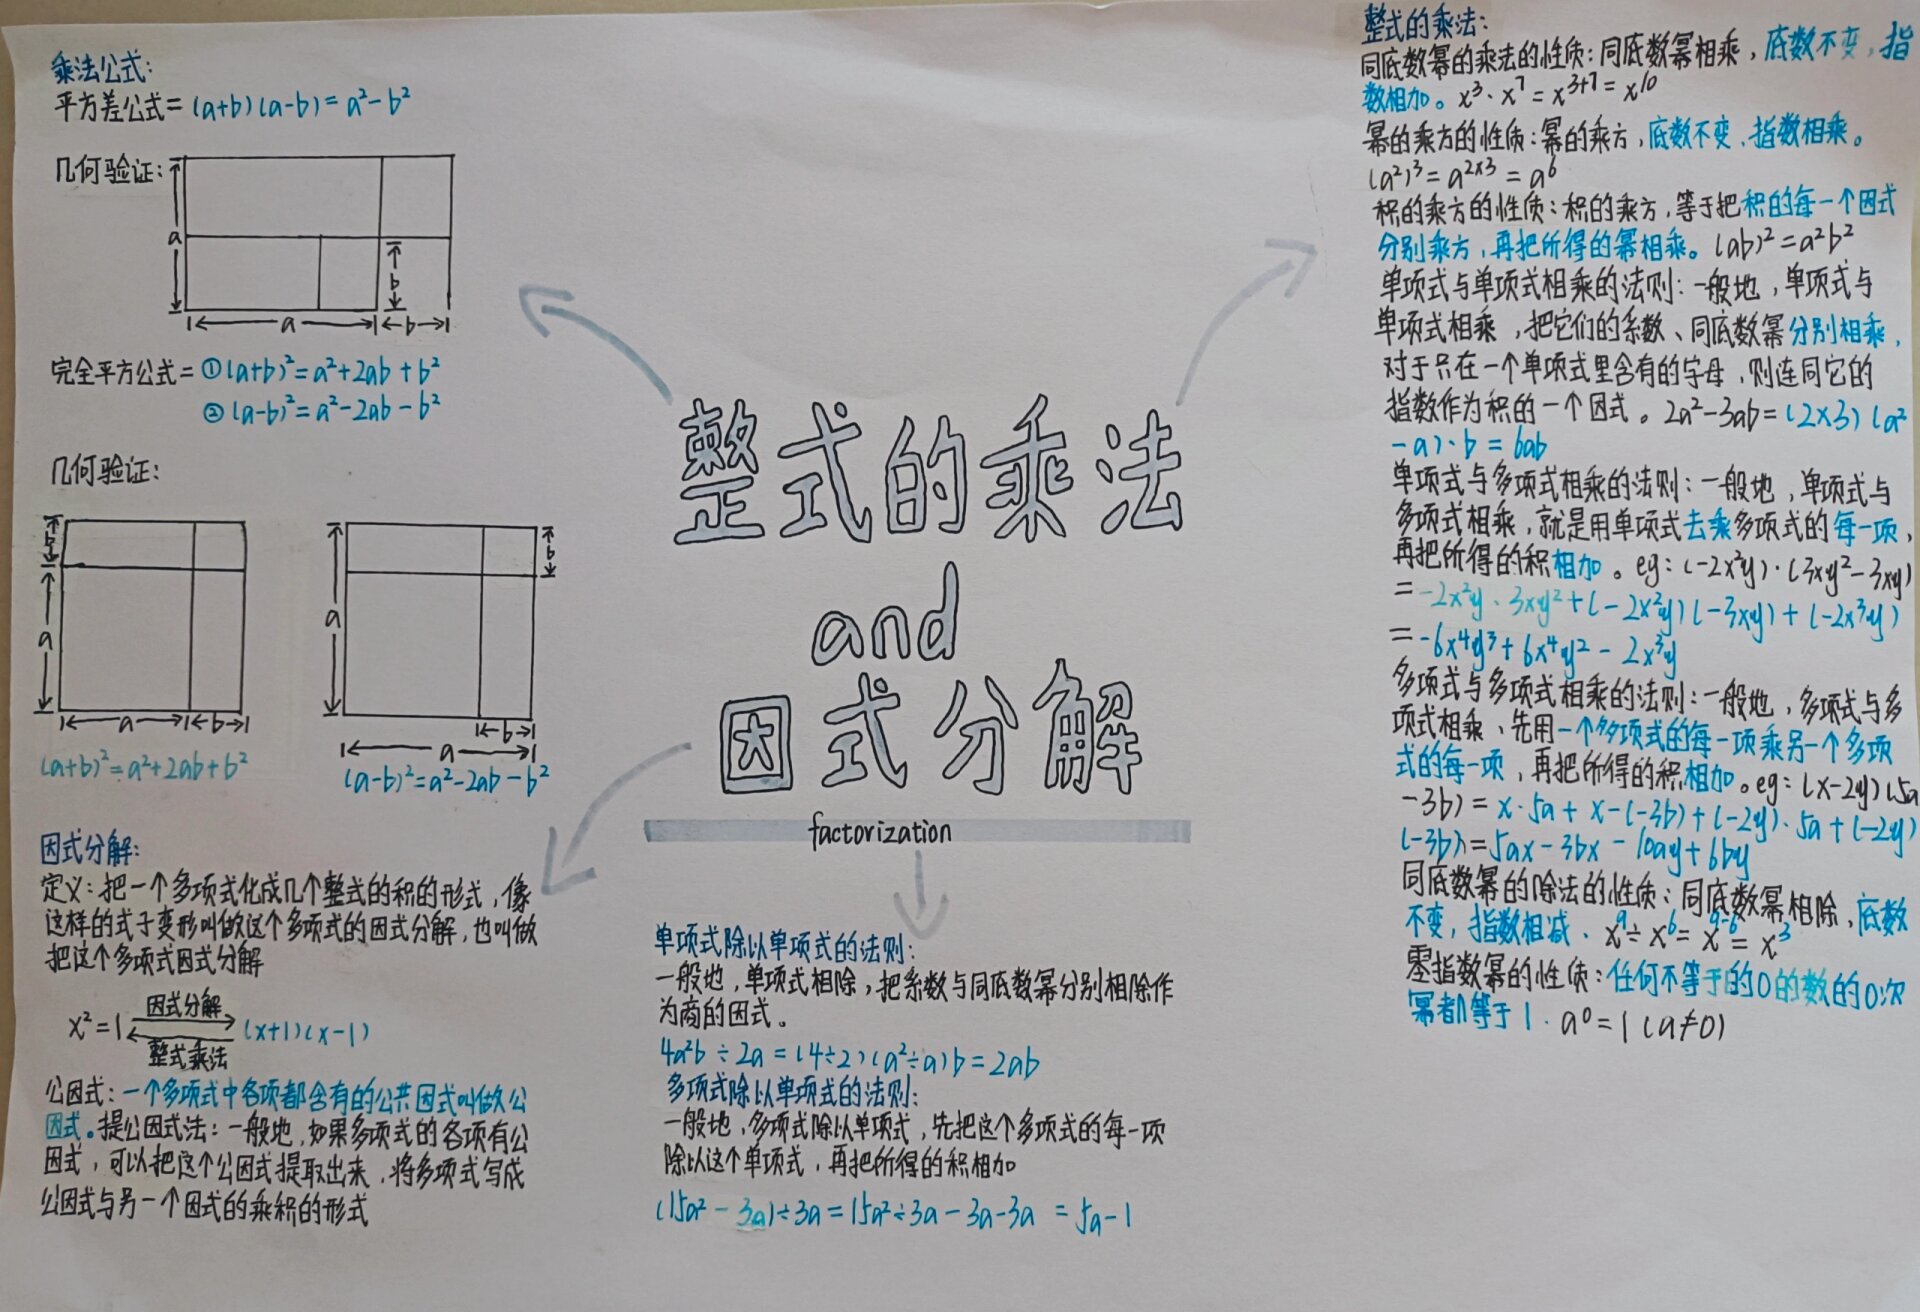 乘法公式:
平方差公式= (a+b)(a-b)=a²-b²
几何验证:
a
b
a
b
完全平方公式= ①(a+b)²=a²+2ab+b²
②(a-b)²=a²-2ab-b²
几何验证:
b
a
a
b
(a+b)²=a²+2ab+b²
a
b
b
a
(a-b)²=a²-2ab-b²
因式分解:
定义:把一个多项式化成几个整式的积的形式,像
这样的式子变形叫做这个多项式的因式分解,也叫做
把这个多项式因式分解
因式分解
x²=1 (x+1)(x-1)
整式乘法
公因式:一个多项式中各项都含有的公共因式叫做公
因式。提公因式法:一般地,如果多项式的各项有公
因式,可以把这个公因式提取出来,将多项式写成
公因式与另一个因式的乘积的形式
整式的乘法
and
因式分解
factorization
单项式除以单项式的法则:
一般地,单项式相除,把系数与同底数幂分别相除作
为商的因式。
4a²b÷2a=(4÷2)(a²÷a)b=2ab
多项式除以单项式的法则:
一般地,多项式除以单项式,先把这个多项式的每一项
除以这个单项式,再把所得的积相加
(15a²-3a)÷3a=15a²÷3a-3a-3a =5a-1
整式的乘法:
同底数幂的乘法的性质:同底数幂相乘,底数不变,指
数相加。x³·x⁷=x³⁺⁷=x¹⁰
幂的乘方的性质:幂的乘方,底数不变、指数相乘。
(a²)³=a²ˣ³=a⁶
积的乘方的性质:积的乘方,等于把积的每一个因式
分别乘方,再把所得的幂相乘。(ab)²=a²b²
单项式与单项式相乘的法则:一般地,单项式与
单项式相乘,把它们的系数、同底数幂分别相乘,
对于只在一个单项式里含有的字母,则连同它的
指数作为积的一个因式。2a²-3ab=(2×3)(a²
-a)·b=6ab
单项式与多项式相乘的法则:一般地,单项式与
多项式相乘,就是用单项式去乘多项式的每一项,
再把所得的积相加。eg:(-2x²y)·(3xy²-3xy)
=-2x²y·3xy²+(-2x²y)(-3xy)+(-2x³y)
=-6x⁴y³+6x⁴y²-2x³y
多项式与多项式相乘的法则:一般地,多项式与多
项式相乘、先用一个多项式的每一项乘另一个多项
式的每一项,再把所得的积相加。eg:(x-2y)(5a
-3b)=x·5a+x-(-3b)+(-2y)·5a+(-2y)
(-3b)=5ax-3bx-10ay+6by
同底数幂的除法的性质:同底数幂相除,底数
不变,指数相减、x⁹÷x⁶=x⁹⁻⁶=x³
零指数幂的性质:任何不等于的0的数的0次
幂都等于1.a⁰=1(a≠0)